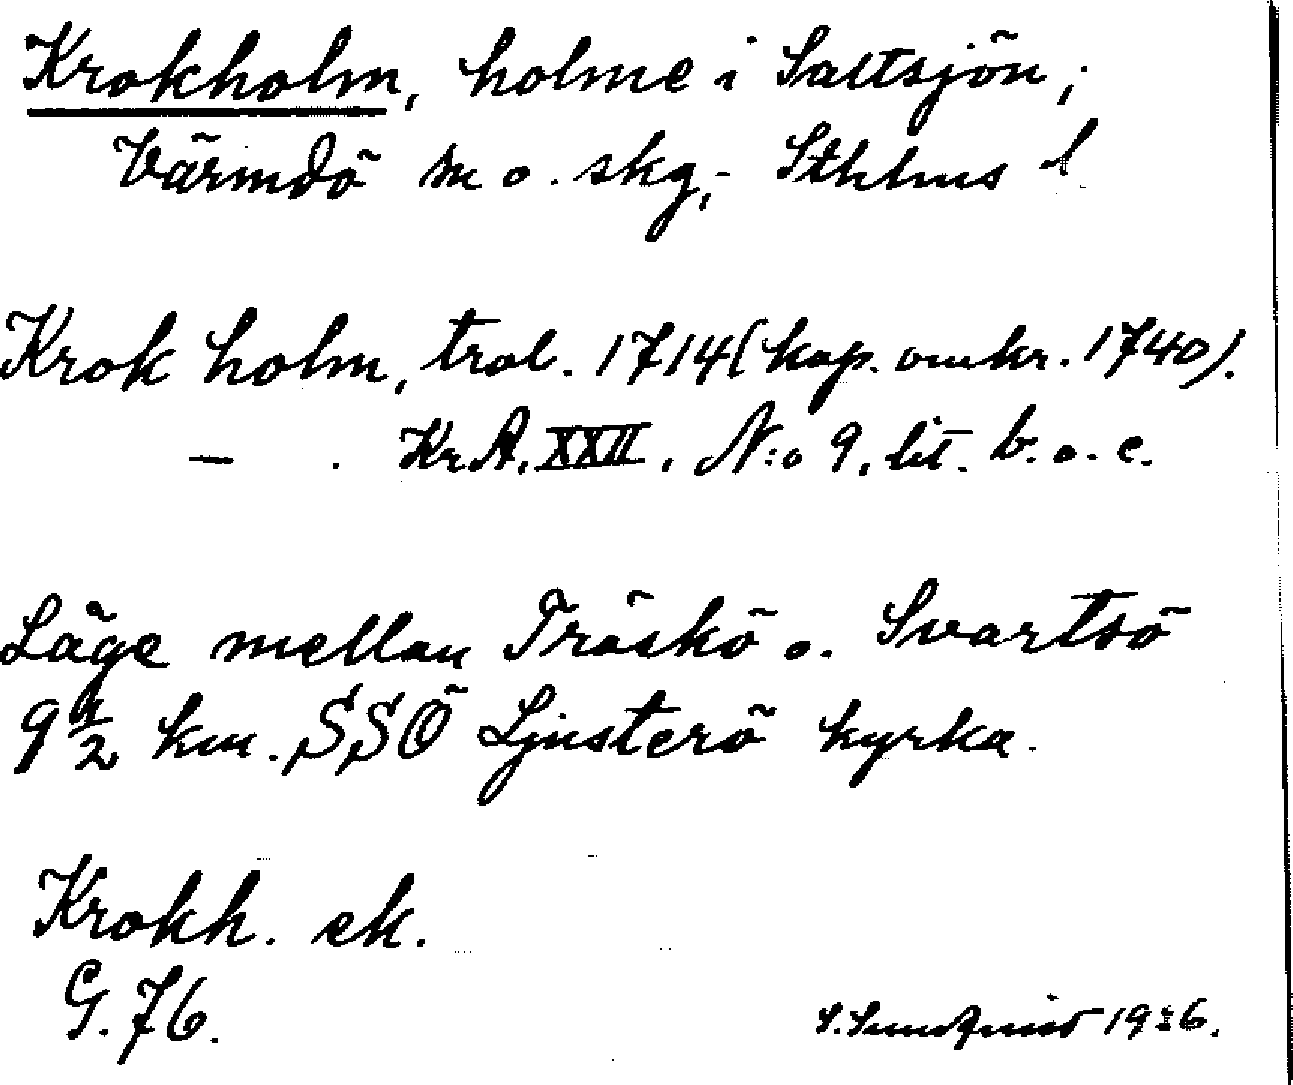 Krokholm, holme i Saltsjön,
Värmdö sn o. skg, Sthlms l
Krok holm, trol. 1714 (kop. omkr. 1740).
— . KrA. XXII. N:o 9. lit. b. o. c.
Läge mellan Träskö o. Svartsö
9 1/2 km. SSÖ Ljusterö kyrka.
Krokh. ek.
G. 76.
S. Sundquist